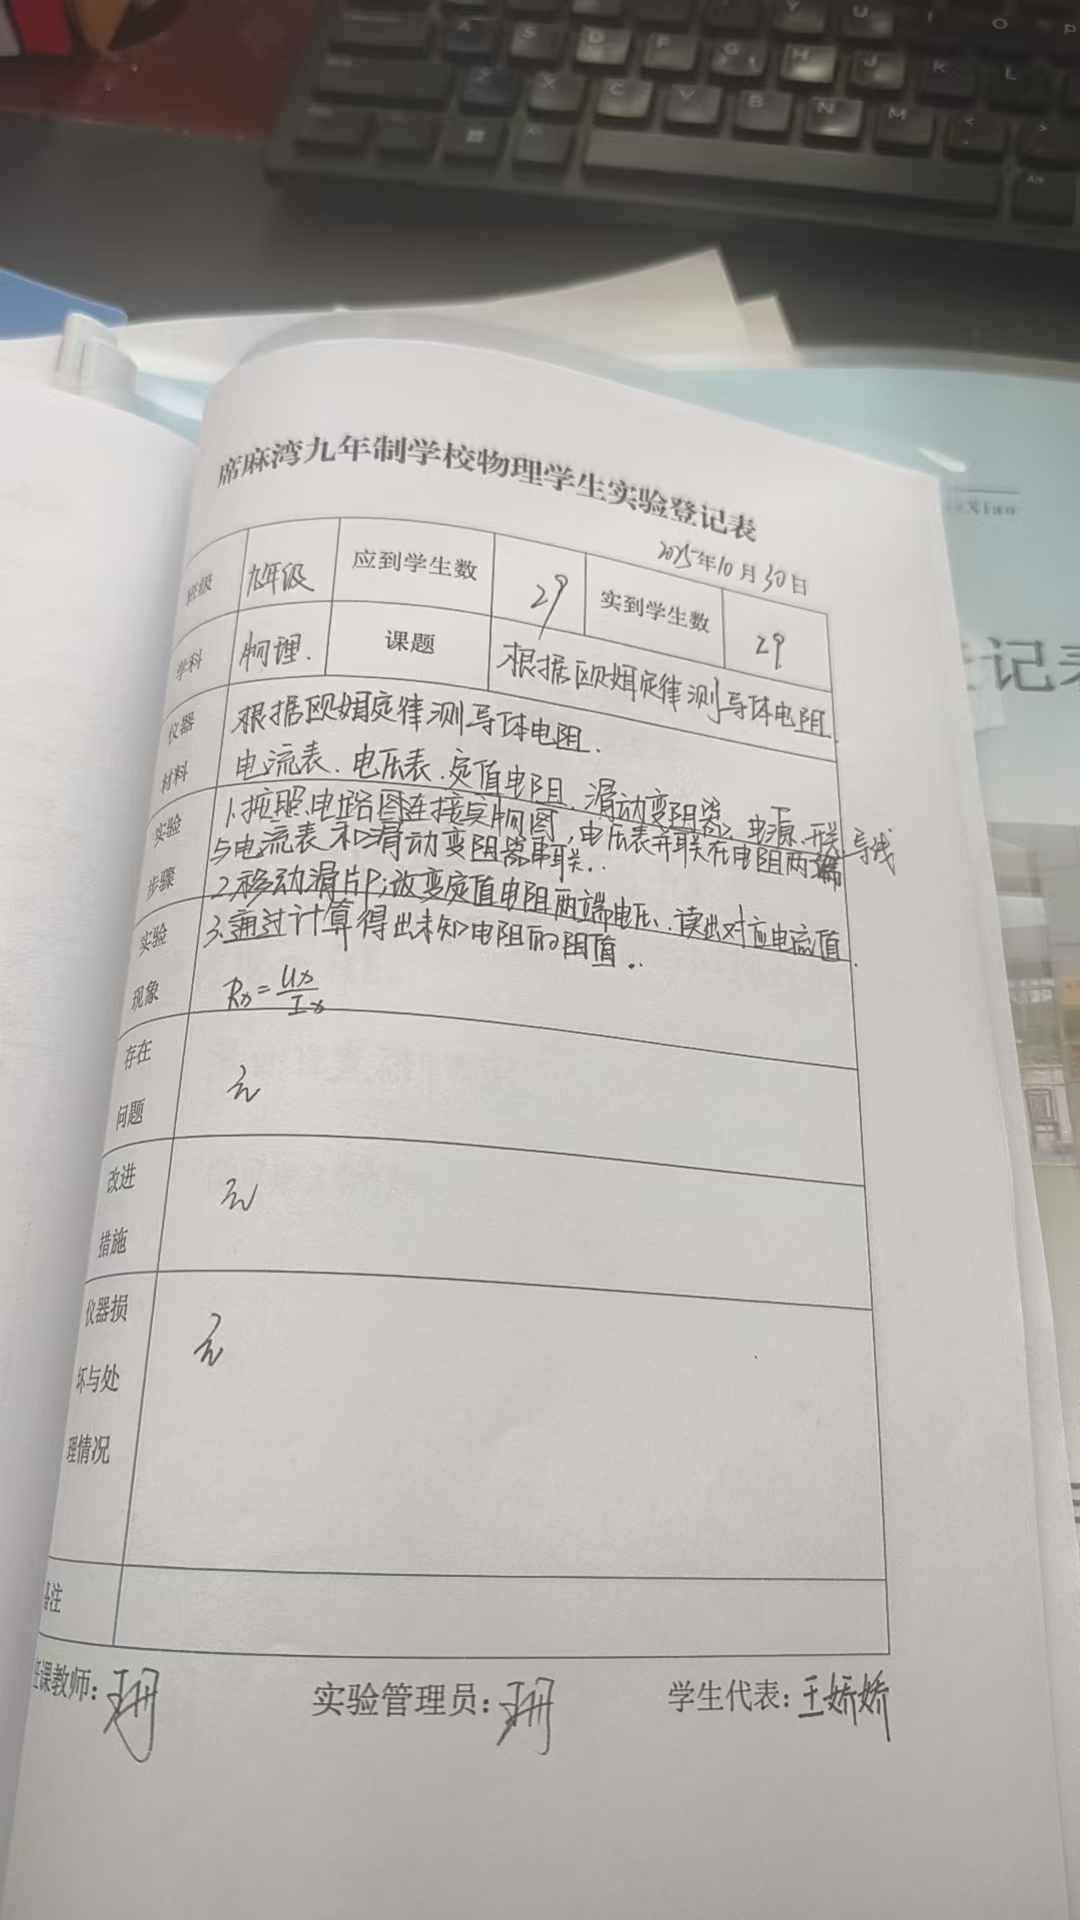 席麻湾九年制学校物理学生实验登记表
2025年10月30日
班级 九年级 应到学生数 29 实到学生数 29
学科 物理. 课题 根据欧姆定律测导体电阻.
仪器材料 根据欧姆定律测导体电阻.
电流表、电压表、定值电阻、滑动变阻器、电源、开关、导线
实验步骤 1.按照电路图连接实物图,电压表并联在电阻两端
与电流表和滑动变阻器串联.
2.移动滑片P;改变定值电阻两端电压、读出对应电流值.
实验现象 3.通过计算得出未知电阻的阻值.
Rx=Ux/Ix
存在问题 无
改进措施 无
仪器损坏与处理情况 无
备注
任课教师: 实验管理员: 学生代表: 王娇娇
记